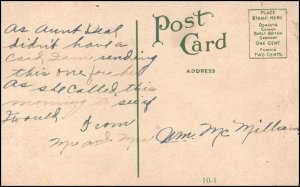 Post Card
PLACE
STAMP HERE
DOMESTIC
CANADA
GREAT BRITAIN
GERMANY
ONE CENT
FOREIGN
TWO CENTS.
ADDRESS
As Aunt Deal
didn't have a
card I am sending
this one for her
As she called this
morning to see if
would
From
Mr and Mrs
Wm. McMillan
10-1